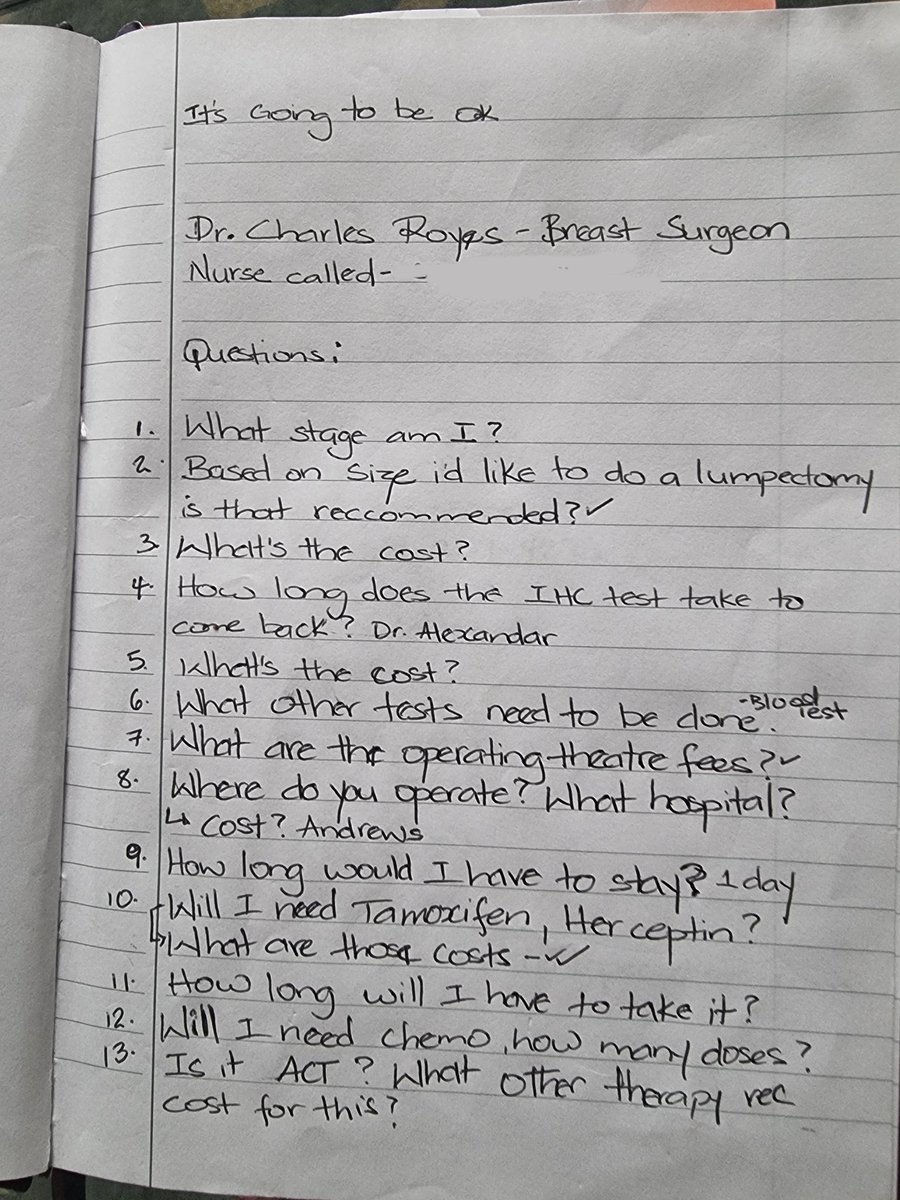 It's Going to be ok
Dr. Charles Royes - Breast Surgeon
Nurse called- -
Questions:
1. What stage am I?
2. Based on size i'd like to do a lumpectomy
is that reccommended? ✓
3. What's the cost?
4. How long does the IHC test take to
come back? Dr. Alexandar
5. What's the cost?
6. What other tests need to be done. -Blood Test
7. What are the operating theatre fees? ✓
8. Where do you operate? What hospital?
↳ Cost? Andrews
9. How long would I have to stay? 1 day
10. Will I need Tamoxifen, Herceptin?
↳ What are those costs - ✓
11. How long will I have to take it?
12. Will I need chemo, how many doses?
13. Is it ACT? What other therapy rec
cost for this?